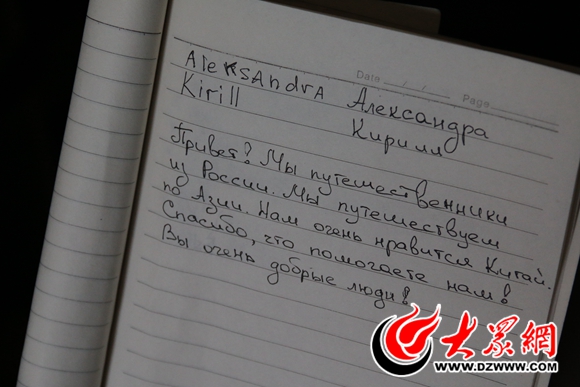 Date / / Page
Aleksandra Александра
Kirill Кирилл
Привет! Мы путешественники
из России. Мы путешествуем
по Азии. Нам очень нравится Китай.
Спасибо, что помогаете нам!
Вы очень добрые люди!
大眾網
WWW.DZWWW.COM